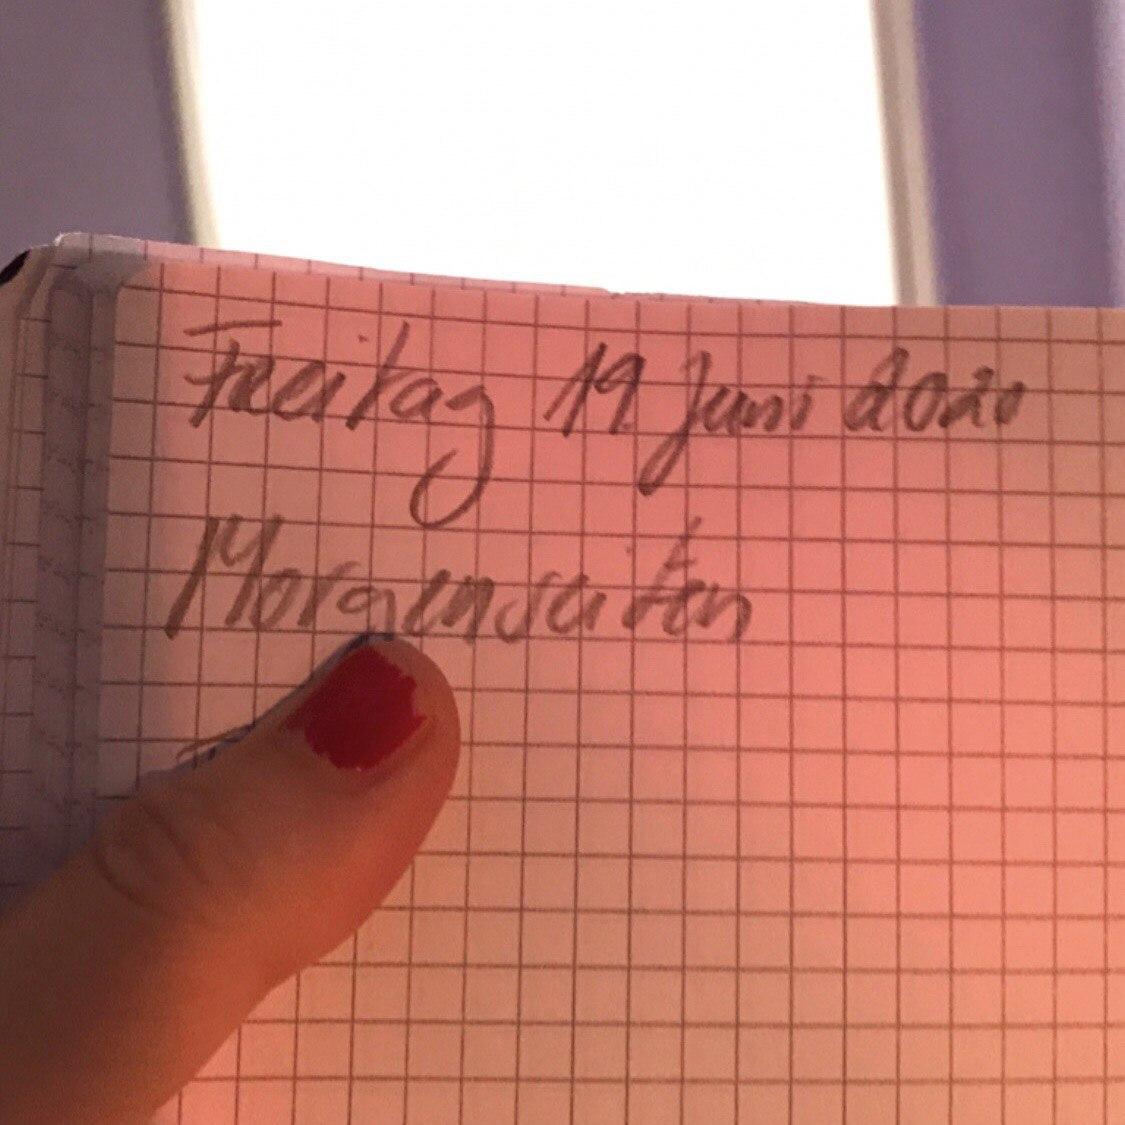 Freitag 19. Juni 2020
Morgenseiten